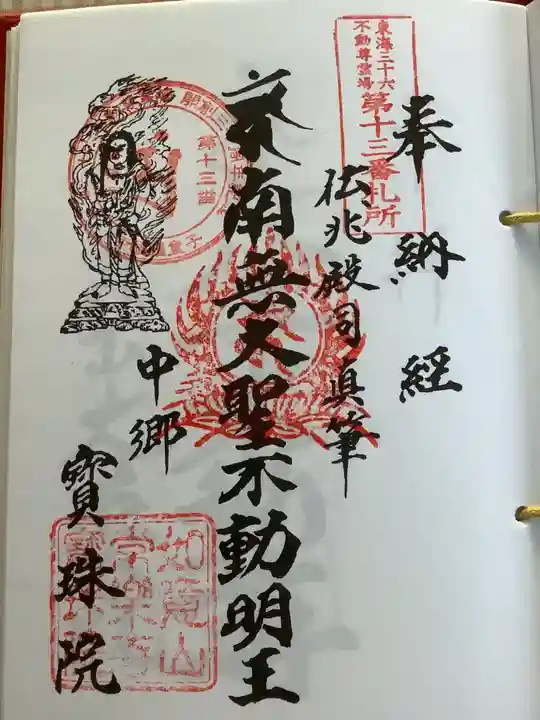 東海三十六
不動尊霊場
第十三番札所
奉納経
兆殿司真筆
南無大聖不動明王
第十三番
中郷
寳珠院
如意山